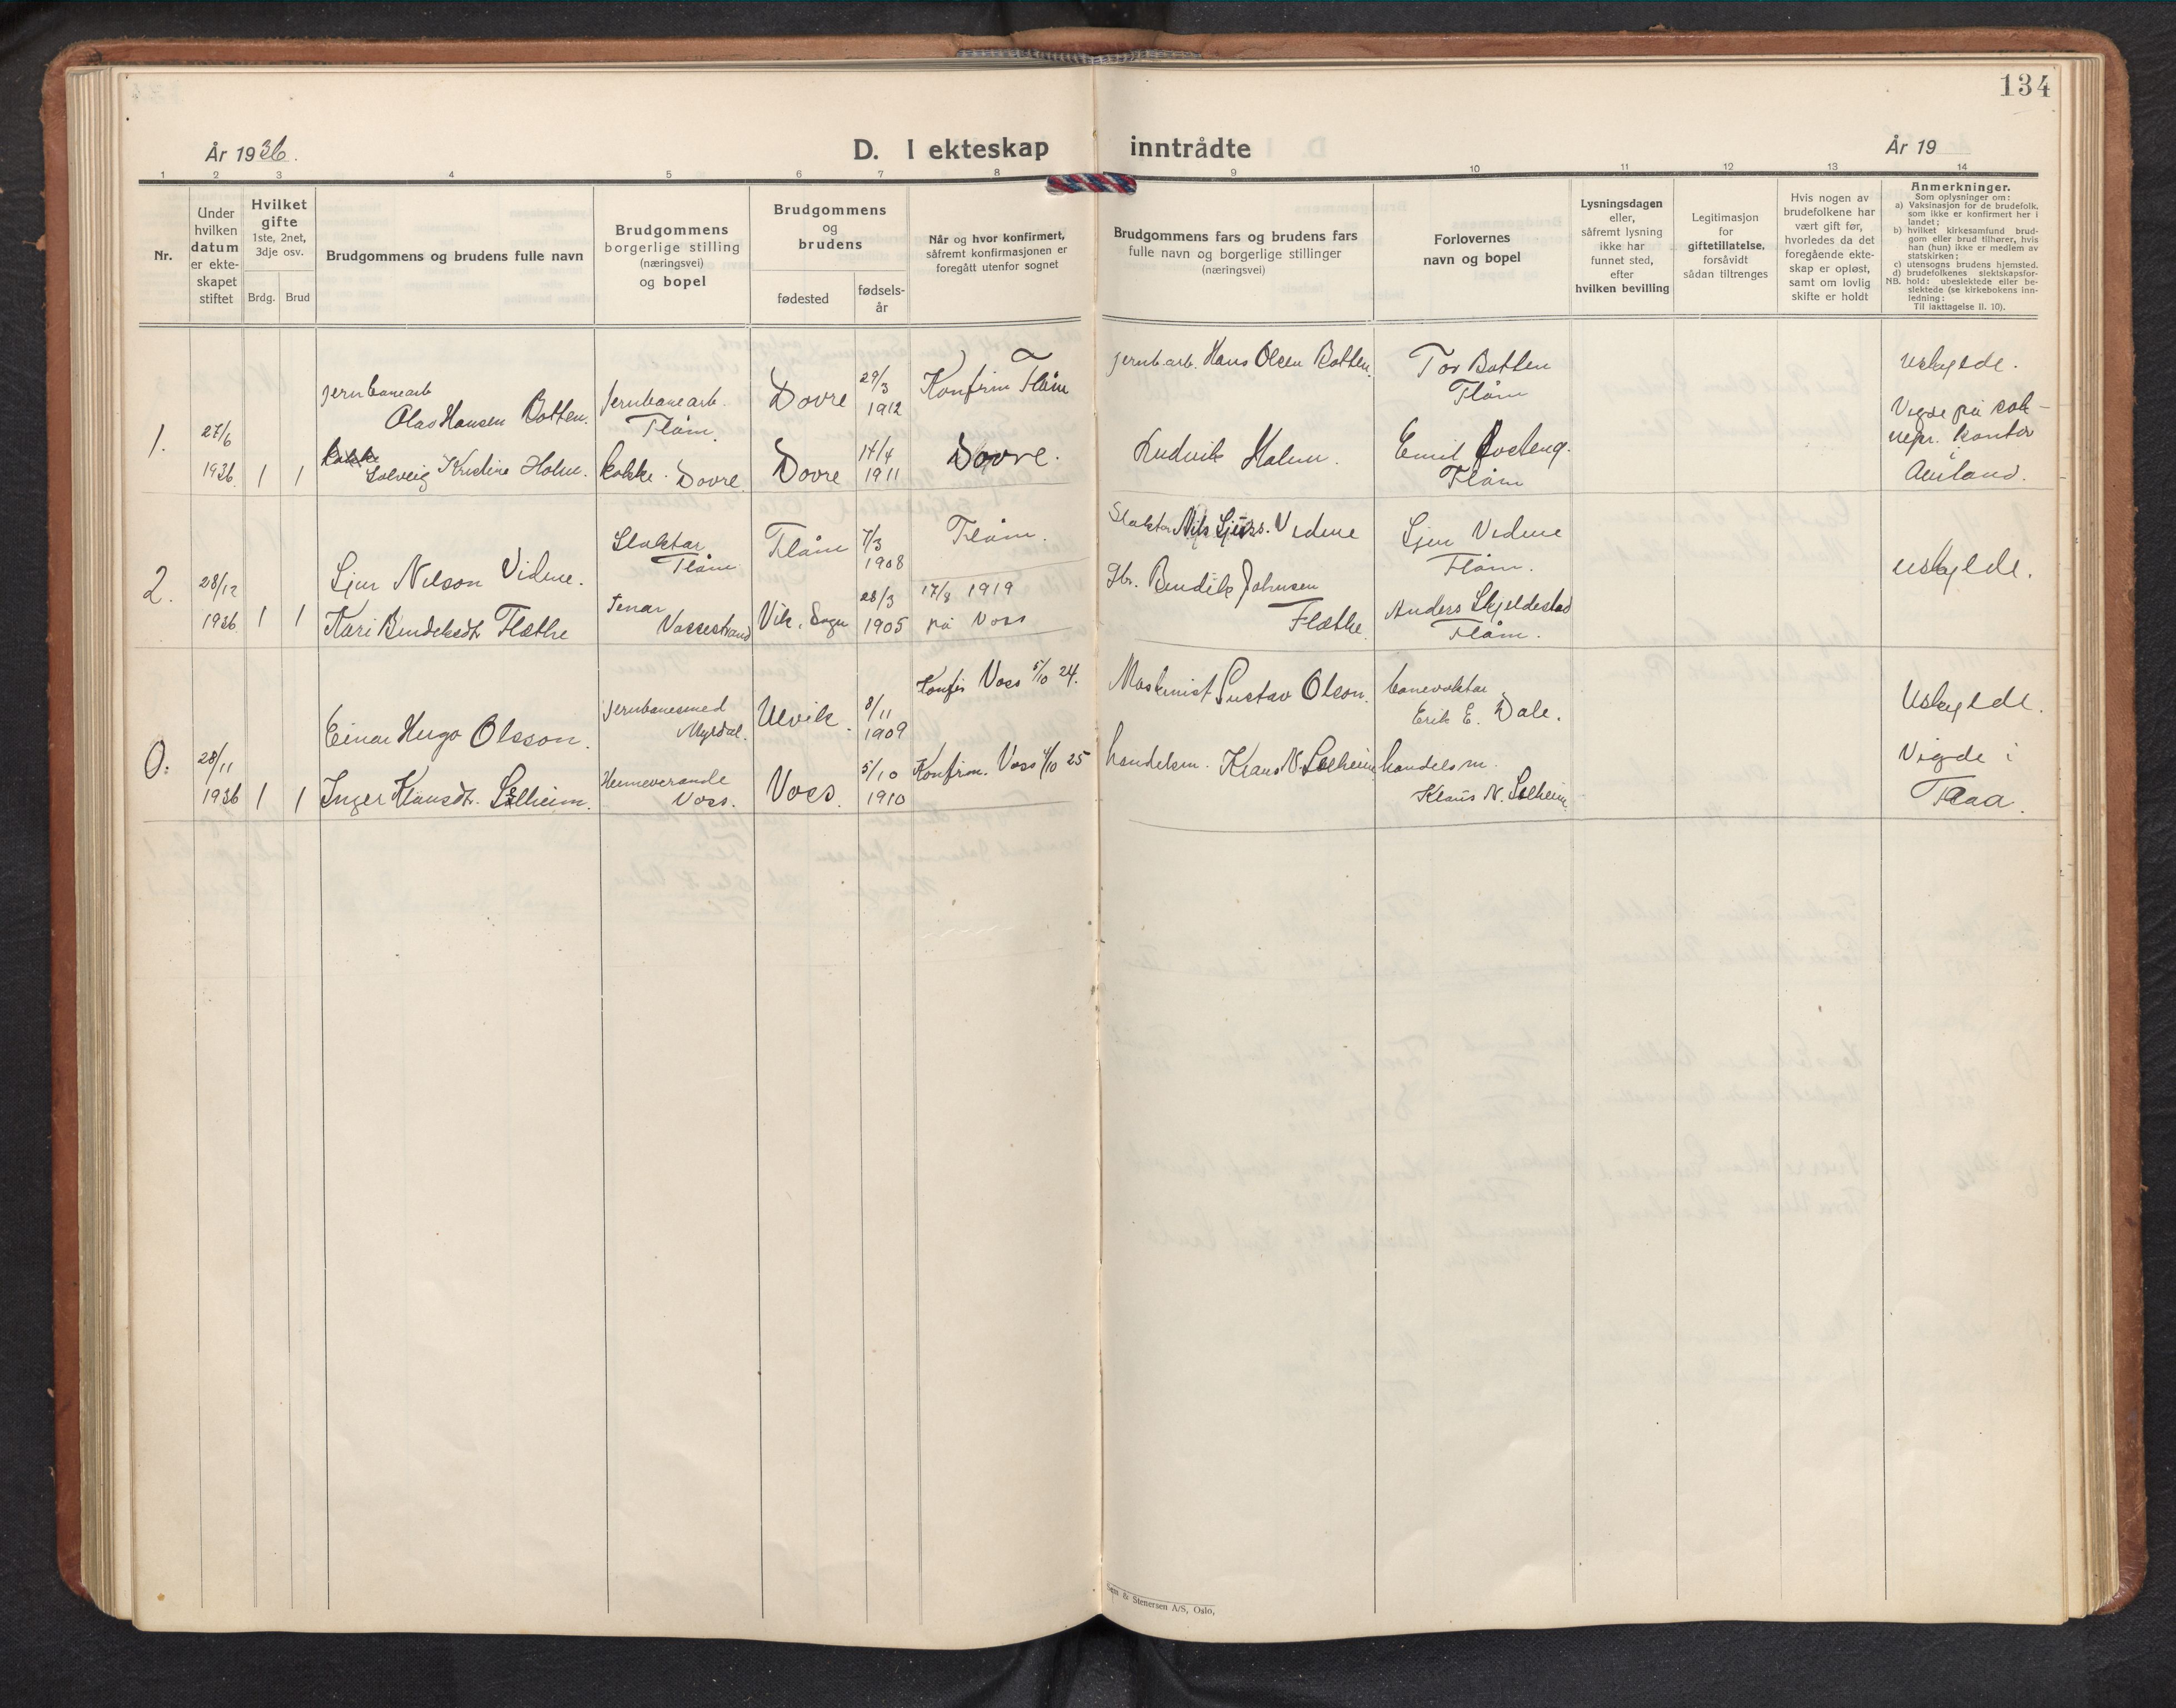 134
År 1936.
D. I ekteskap inntrådte
År 19
1 2 3 4 5 6 7 8 9 10 11 12 13 14
Nr.
Under
hvilken
datum
er ekte-
skapet
stiftet
Hvilket
gifte
1ste, 2net,
3dje osv.
Brdg. Brud
Brudgommens og brudens fulle navn
Brudgommens
borgerlige stilling
(næringsvei)
og bopel
Brudgommens
og
brudens
fødested
fødsels-
år
Når og hvor konfirmert,
såfremt konfirmasjonen er
foregått utenfor sognet
Brudgommens fars og brudens fars
fulle navn og borgerlige stillinger
(næringsvei)
Forlovernes
navn og bopel
Lysningsdagen
eller,
såfremt lysning
ikke har
funnet sted,
efter
hvilken bevilling
Legitimasjon
for
giftetillatelse,
forsåvidt
sådan tiltrenges
Hvis nogen av
brudefolkene har
vært gift før,
hvorledes da det
foregående ekte-
skap er opløst,
samt om lovlig
skifte er holdt
Anmerkninger.
Som oplysning om:
a) Vaksinasjon for de brudefolk,
som ikke er konfirmert her i
landet;
b) hvilket kirkesamfund brud-
gom eller brud tilhører, hvis
han (hun) ikke er medlem av
statskirken;
c) utensogns brudens hjemsted.
d) brudefolkenes slektskapsfor-
NB. hold: ubeslektede eller be-
slektede (se kirkebokens inn-
ledning:
Til iakttagelse II. 10).
1.
27/6
1936
1 1
jernbanearb
Olav Hansen Botten.
kokke
Solveig Kristine Holm.
Jernbanearb.
Flåm.
kokke. Dovre.
Dovre
Dovre
29/3
1912
14/4
1911
Konfirm Flåm
Dovre.
jernb.arb. Hans Olsen Botten.
Ludvik Holm.
Tor Botten
Flåm
Emil
Flåm
uskylde.
Vigde på sok-
nepr. kontor
Aurland.
2.
28/12
1936
1 1
Sjur Nilson Vidme.
Kari Bendiksdt. Flæthe
Slaktar
Flåm
Tenar
Vossestrand
Flåm
Vik, Sogn
7/3
1908
28/3
1905
Flåm.
17/8 1919
på Voss
Slaktar Nils Sjurs. Vidme
Gbr. Bendik Johnsen
Flæthe.
Sjur Vidme
Flåm.
Anders Skjeldestad
Flåm.
uskylde.
0.
28/11
1936
1 1
Einar Hugo Olsson.
Inger Klausdt. Selheim.
Jernbanesmed
Myrdal.
Heimeverande
Voss.
Ulvik.
Voss.
8/11
1909
5/10
1910
Konfir Voss 5/10 24.
Konfirm. Voss 4/10 25
Maskinist Gustav Olson.
handelsm. Klaus N. Selheim
banevaktar
Erik E. Dale.
handelsm.
Klaus N. Selheim
Uskylde.
Vigde i
Sem & Stenersen A/S, Oslo,